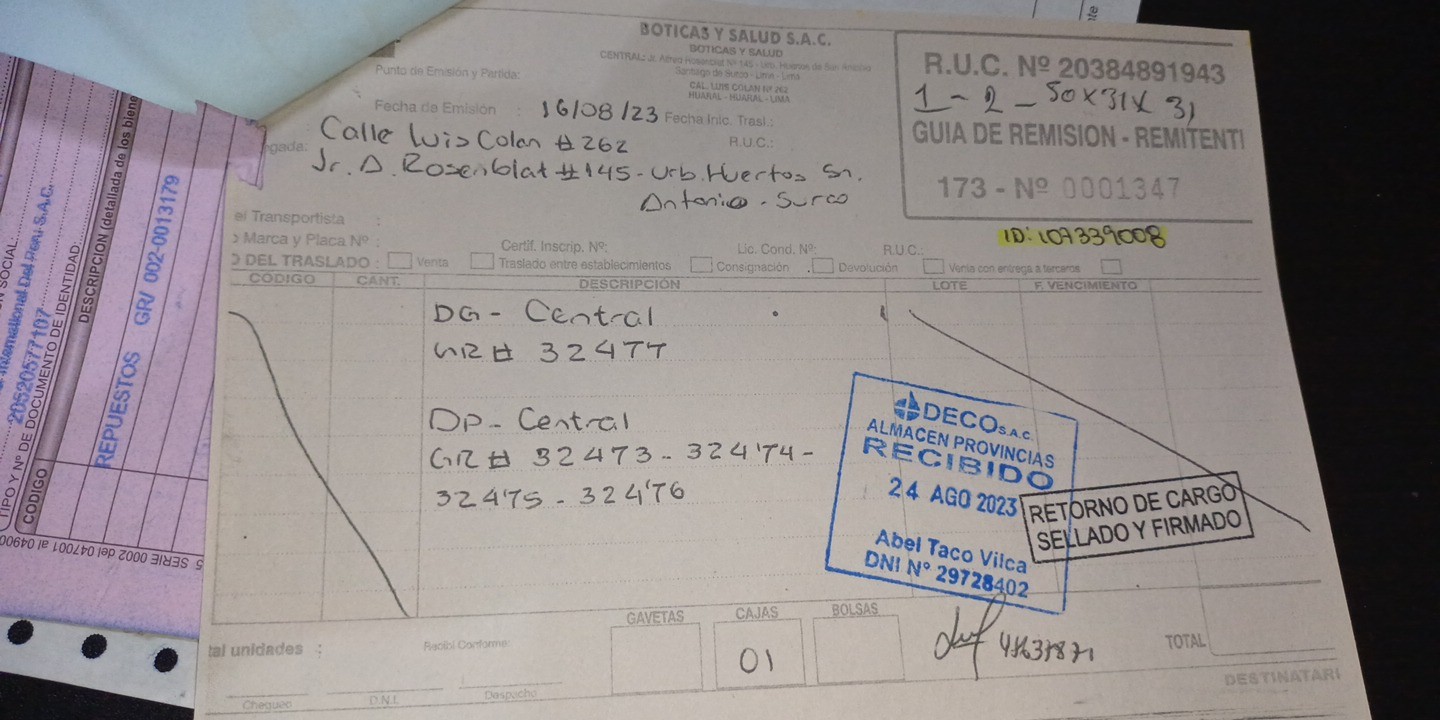 BOTICAS Y SALUD S.A.C.
BOTICAS Y SALUD
CENTRAL: Jr. Alfred Rosenblat Nº 145 - Urb. Huertos de San Antonio
Santiago de Surco - Lima - Lima
CAL. LUIS COLAN Nº 262
HUARAL - HUARAL - LIMA
R.U.C. Nº 20384891943
1 - 2 - 50 x 31 x 31
GUIA DE REMISION - REMITENTE
173 - Nº 0001347
Punto de Emisión y Partida:
Fecha de Emisión : 16/08/23 Fecha Inic. Trasl.:
egada: Calle Luis Colan # 262 R.U.C.:
Jr. A. Rosenblat #145 - Urb. Huertos Sn.
Antonio - Surco
el Transportista :
Marca y Placa Nº : Certif. Inscrip. Nº: Lic. Cond. Nº: R.U.C.: ID: 107339008
O DEL TRASLADO : Venta Traslado entre establecimientos Consignación Devolución Venta con entrega a terceros
CODIGO CANT. DESCRIPCIÓN LOTE F. VENCIMIENTO
DG - Central
GR # 32477
DP - Central
GR # 32473 - 32474 -
32475 - 32476
DECO S.A.C.
ALMACEN PROVINCIAS
RECIBIDO
24 AGO 2023
Abel Taco Vilca
DNI Nº 29728402
RETORNO DE CARGO
SELLADO Y FIRMADO
GAVETAS CAJAS BOLSAS
01
tal unidades : Recibí Conforme: TOTAL
Chequeo D.N.I. Despacho
DESTINATARI
SOCIAL:
International Del Perú S.A.C.
20520577107
TIPO Y Nº DE DOCUMENTO DE IDENTIDAD:
DESCRIPCIÓN (detallada de los biene
CODIGO
REPUESTOS GR/ 002-0013179
SERIE 0002 del 047001 al 04900
te